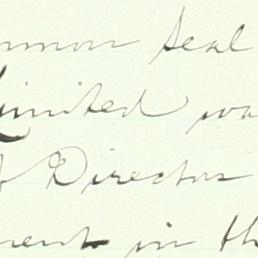 mmon seal
Limited wa
of Director
ment in th